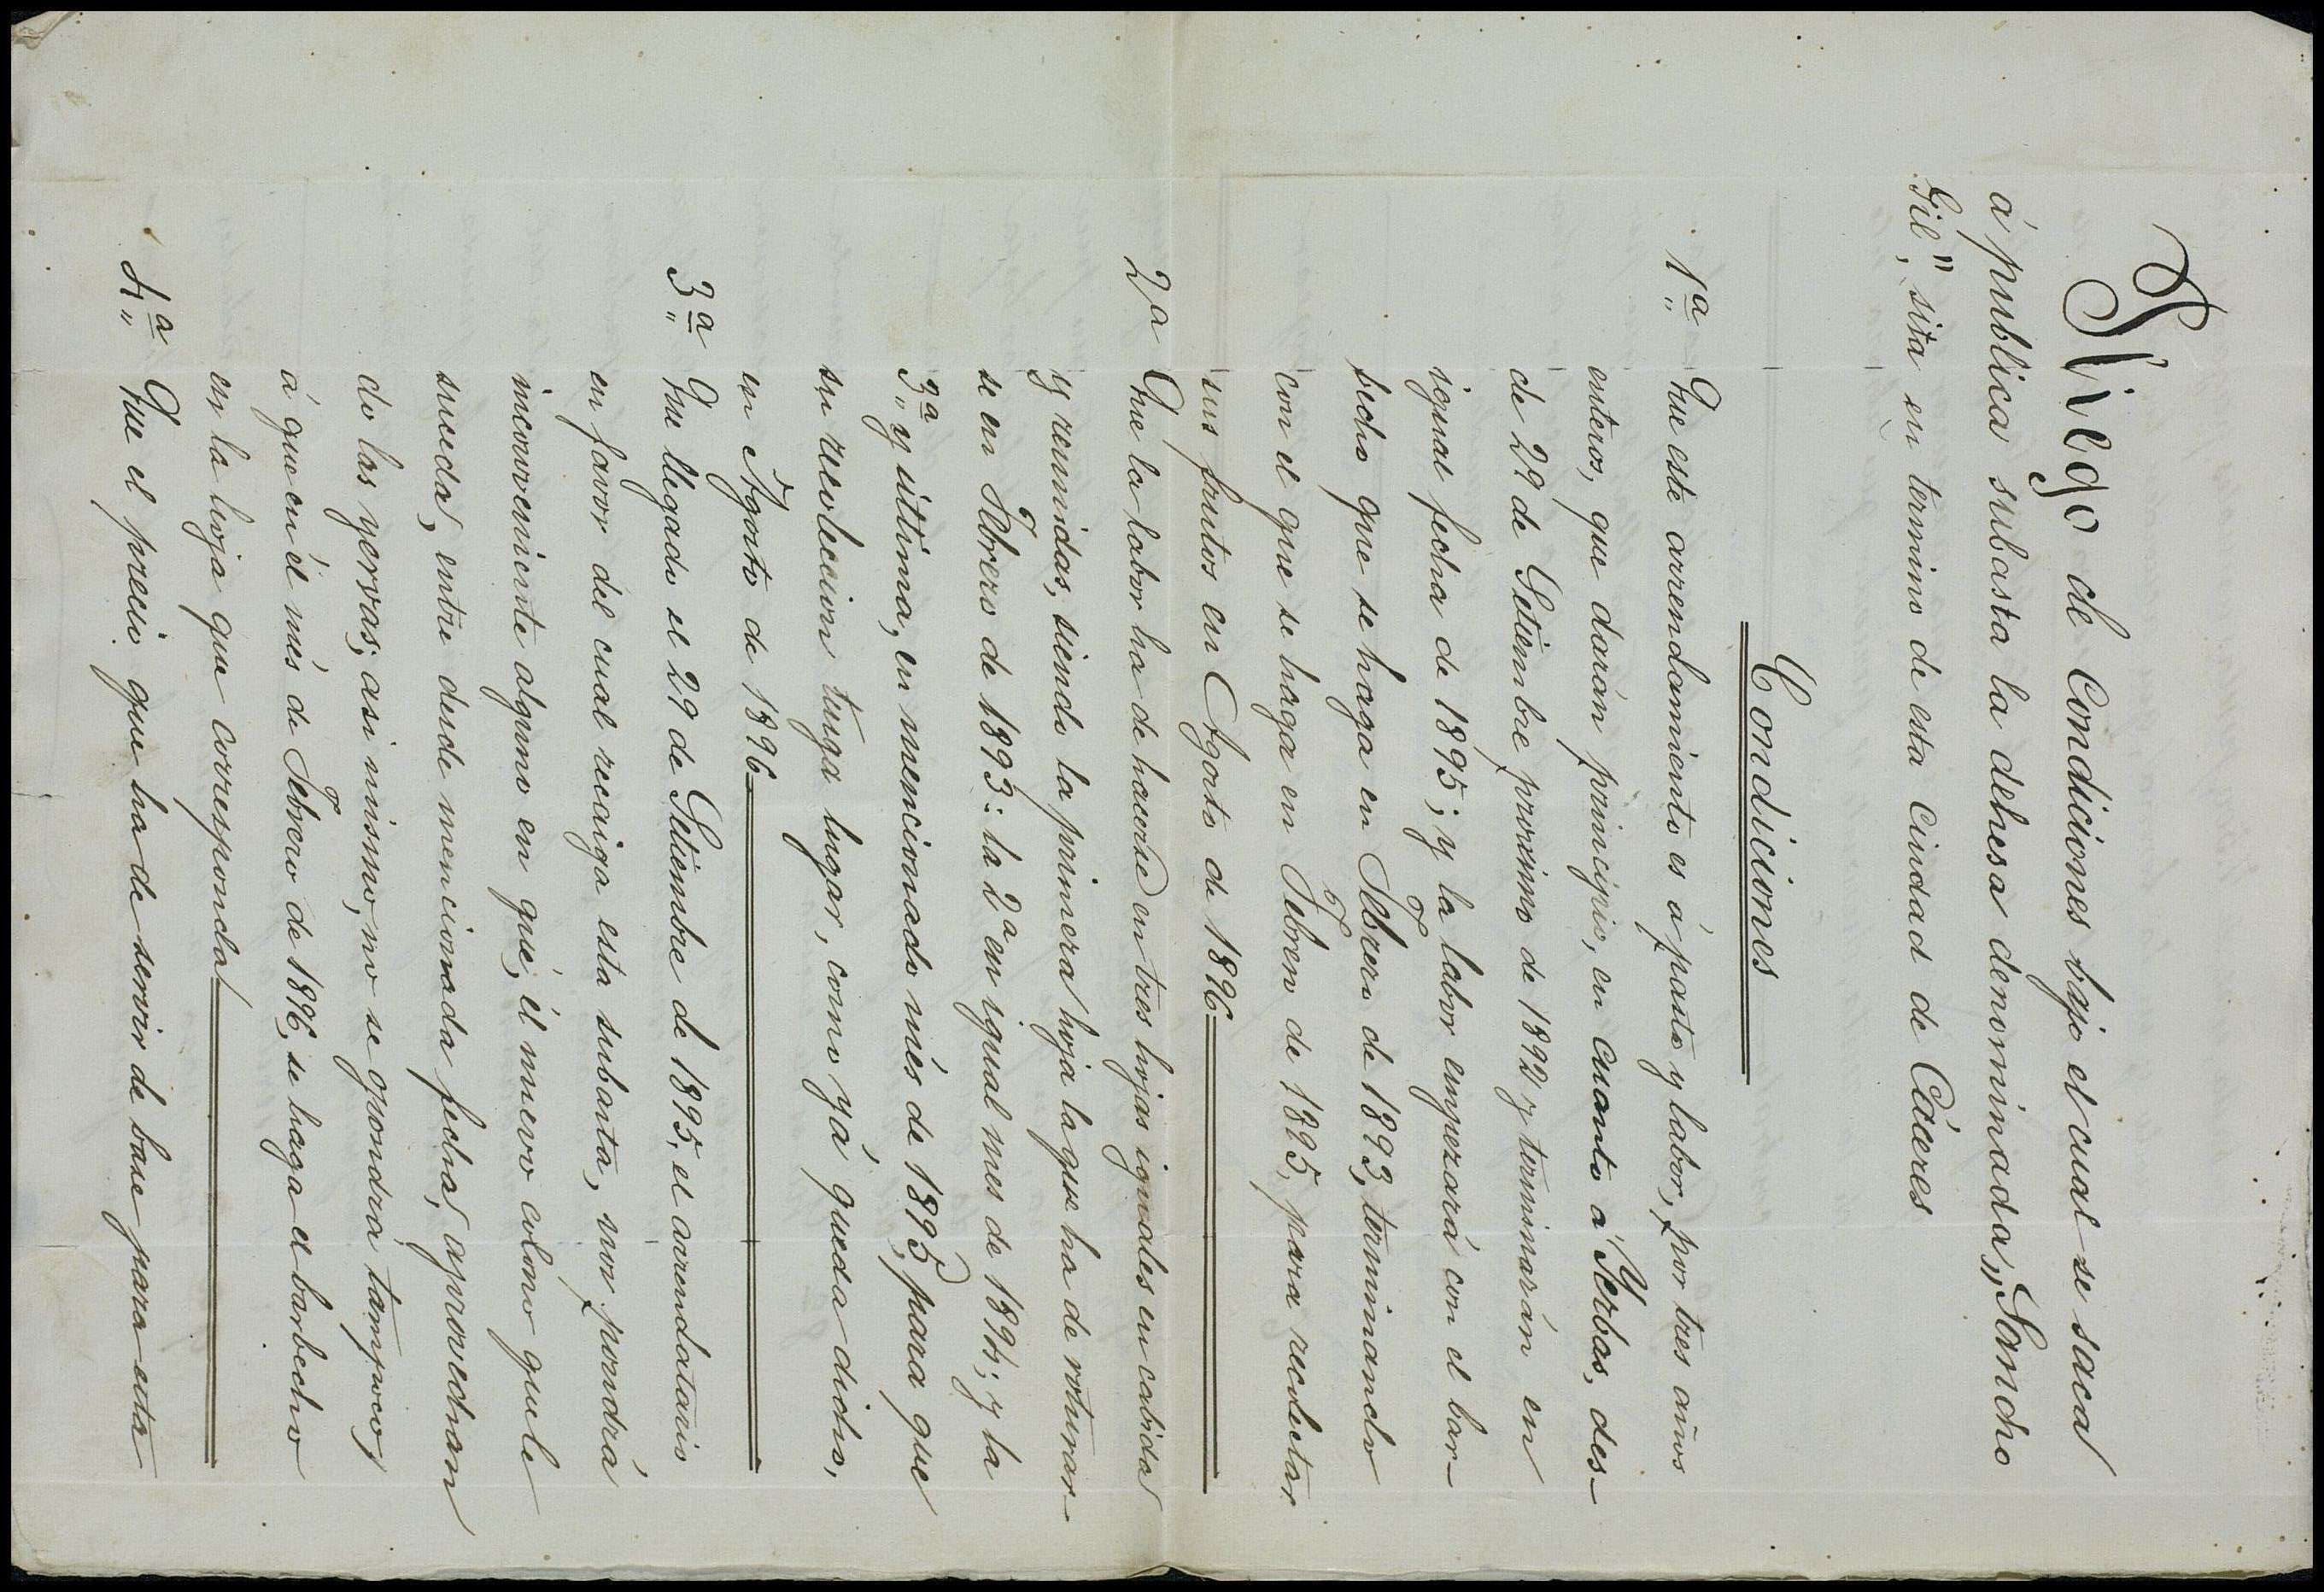 Pliego de Condiciones bajo el cual se saca
á publica subasta la dehesa denominada "Sancho
Gil", sita en termino de esta Ciudad de Cáceres
Condiciones
1ª Que este arrendamiento es á pasto y labor, por tres años
enteros, que darán principio, en cuanto á Yerbas, des-
de 29 de Setiembre proximo de 1892 y terminarán en
igual fecha de 1895; y la labor empezará con el bar-
becho que se haga en Febrero de 1893, terminando
con el que se haga en Febrero de 1895, para recolectar
sus frutos en Agosto de 1896
2ª Que la labor ha de hacerse en tres hojas iguales en cabida
y reunidas, siendo la primera hoja la que ha de roturar-
se en Febrero de 1893: la 2ª en igual mes de 1894; y la
3ª y última, en mencionado més de 1895, para que
su recoleccion tenga lugar, como yá queda dicho,
en Agosto de 1896
3ª Que llegado el 29 de Setiembre de 1895, el arrendatario
en favor del cual recaiga esta subasta, non pondrá
inconveniente alguno en qué, él nuevo colono que le
suceda, entre desde mencionada fecha, aprovechan
do las yervas; asi mismo, no se opondrá tampoco,
á que en él més de Febrero de 1896, se haga el barbecho
en la hoja que corresponda
4ª Que el precio que ha de servir de base para esta